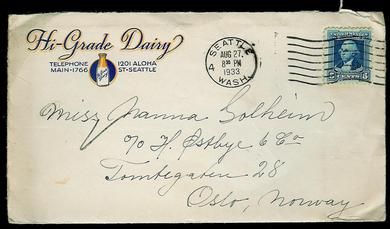 Hi-Grade Dairy
TELEPHONE 1201 ALOHA
MAIN-1766 ST-SEATTLE
SEATTLE
4
AUG 27
8 PM
1933
WASH.
5 CENTS 5
Miss Nanna Solheim
c/o H. Østbye & Co
Tomtegaten 28
Oslo, Norway